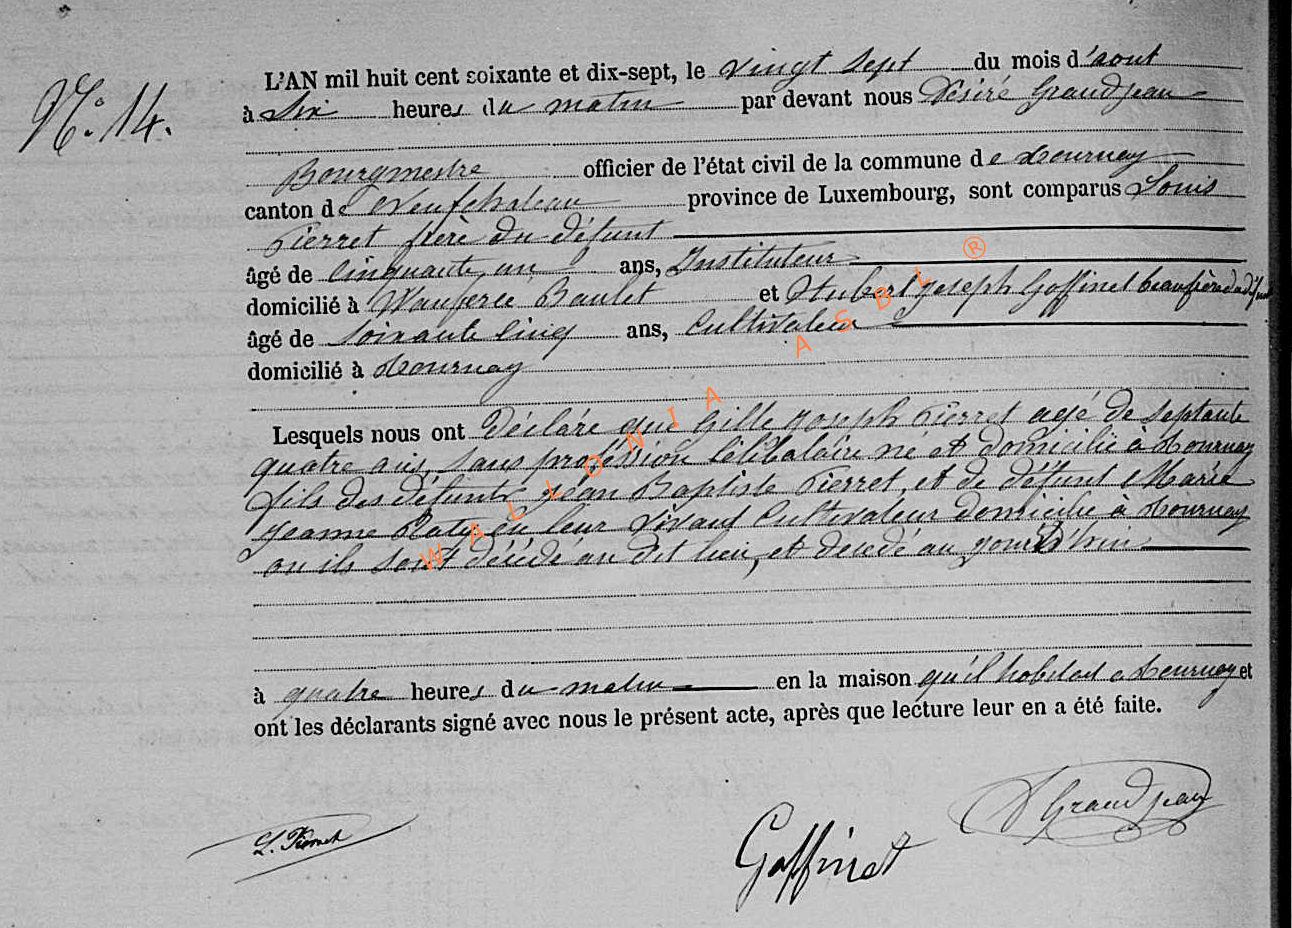 N.° 14.
L'AN mil huit cent soixante et dix-sept, le vingt sept du mois d'aout
à six heures du matin par devant nous Désiré Grandjean
Bourgmestre officier de l'état civil de la commune de Tournay
canton de Neufchateau province de Luxembourg, sont comparus Louis
Pierret frère du défunt
âgé de cinquante un ans, Instituteur
domicilié à Wanferée Baulet et Hubert Joseph Goffinet beaufrère du défunt
âgé de soixante cinq ans, Cultivateur
domicilié à Tournay
Lesquels nous ont déclaré que Gille Joseph Pierret agé de septante
quatre ans, sans profession célibataire né et domicilié à Tournay
fils des défunts Jean Baptiste Pierret, et de défunt Marie
Jeanne en leur vivant Cultivateur domicilié à Tournay
ou ils sont décédé au dit lieu, et decedé au jourd'huis
à quatre heures du matin en la maison qu'il habitait a Tournay et
ont les déclarants signé avec nous le présent acte, après que lecture leur en a été faite.
L. Pierret
Goffinet
D Grandjean
WALLONIA ASBL ®